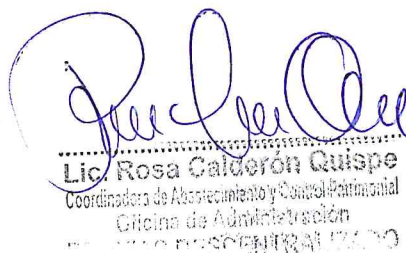 Lic. Rosa Calderón Quispe
Coordinadora de Abastecimiento y Control Patrimonial
Oficina de Administración
DESCENTRALIZADO